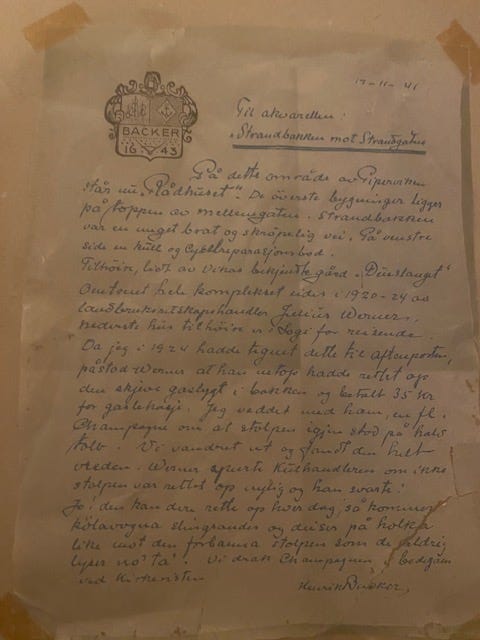 17-11-41
BACKER
16 43
Til akvarellen:
"Strandbakken mot Strandgaten
På dette område av Piperviken
står nu "Rådhuset". De øverste bygninger ligger
på toppen av mellemgaten. Strandbakken
var en meget bratt og skrøpelig vei. På venstre
side en kull og Cykkelreparasjonsbod.
Tilhøire, litt av Vikas bekjendte gård
Omtrent hele komplekset eides i 1920-24 av
landbruksredskapshandler Julius Werner.
nederste hus tilhøire er: Logi for reisende.
Da jeg i 1924 hadde tegnet dette til Aftenposten,
påstod Werner at han netop hadde rettet op
den skjeve gaslykt i bakken og betalt 35 kr
for Jeg veddet med ham, en fl.
Champagne om at stolpen igjen stod på halv
tolv. Vi vandret ut og fandt den helt
vreden. Werner spurte Kulhandleren om ikke
stolpen var rettet op nylig og han svarte:
Jo! den kan dere rette op hver dag, så kommer
kølavogna slingrandes og deiser på hølka
like mot den forbanna stolpen som de aldrig
lyser no' ta'. Vi drak Champagnen i bodegaen
ved Kirkeristen
Henrik Backer,